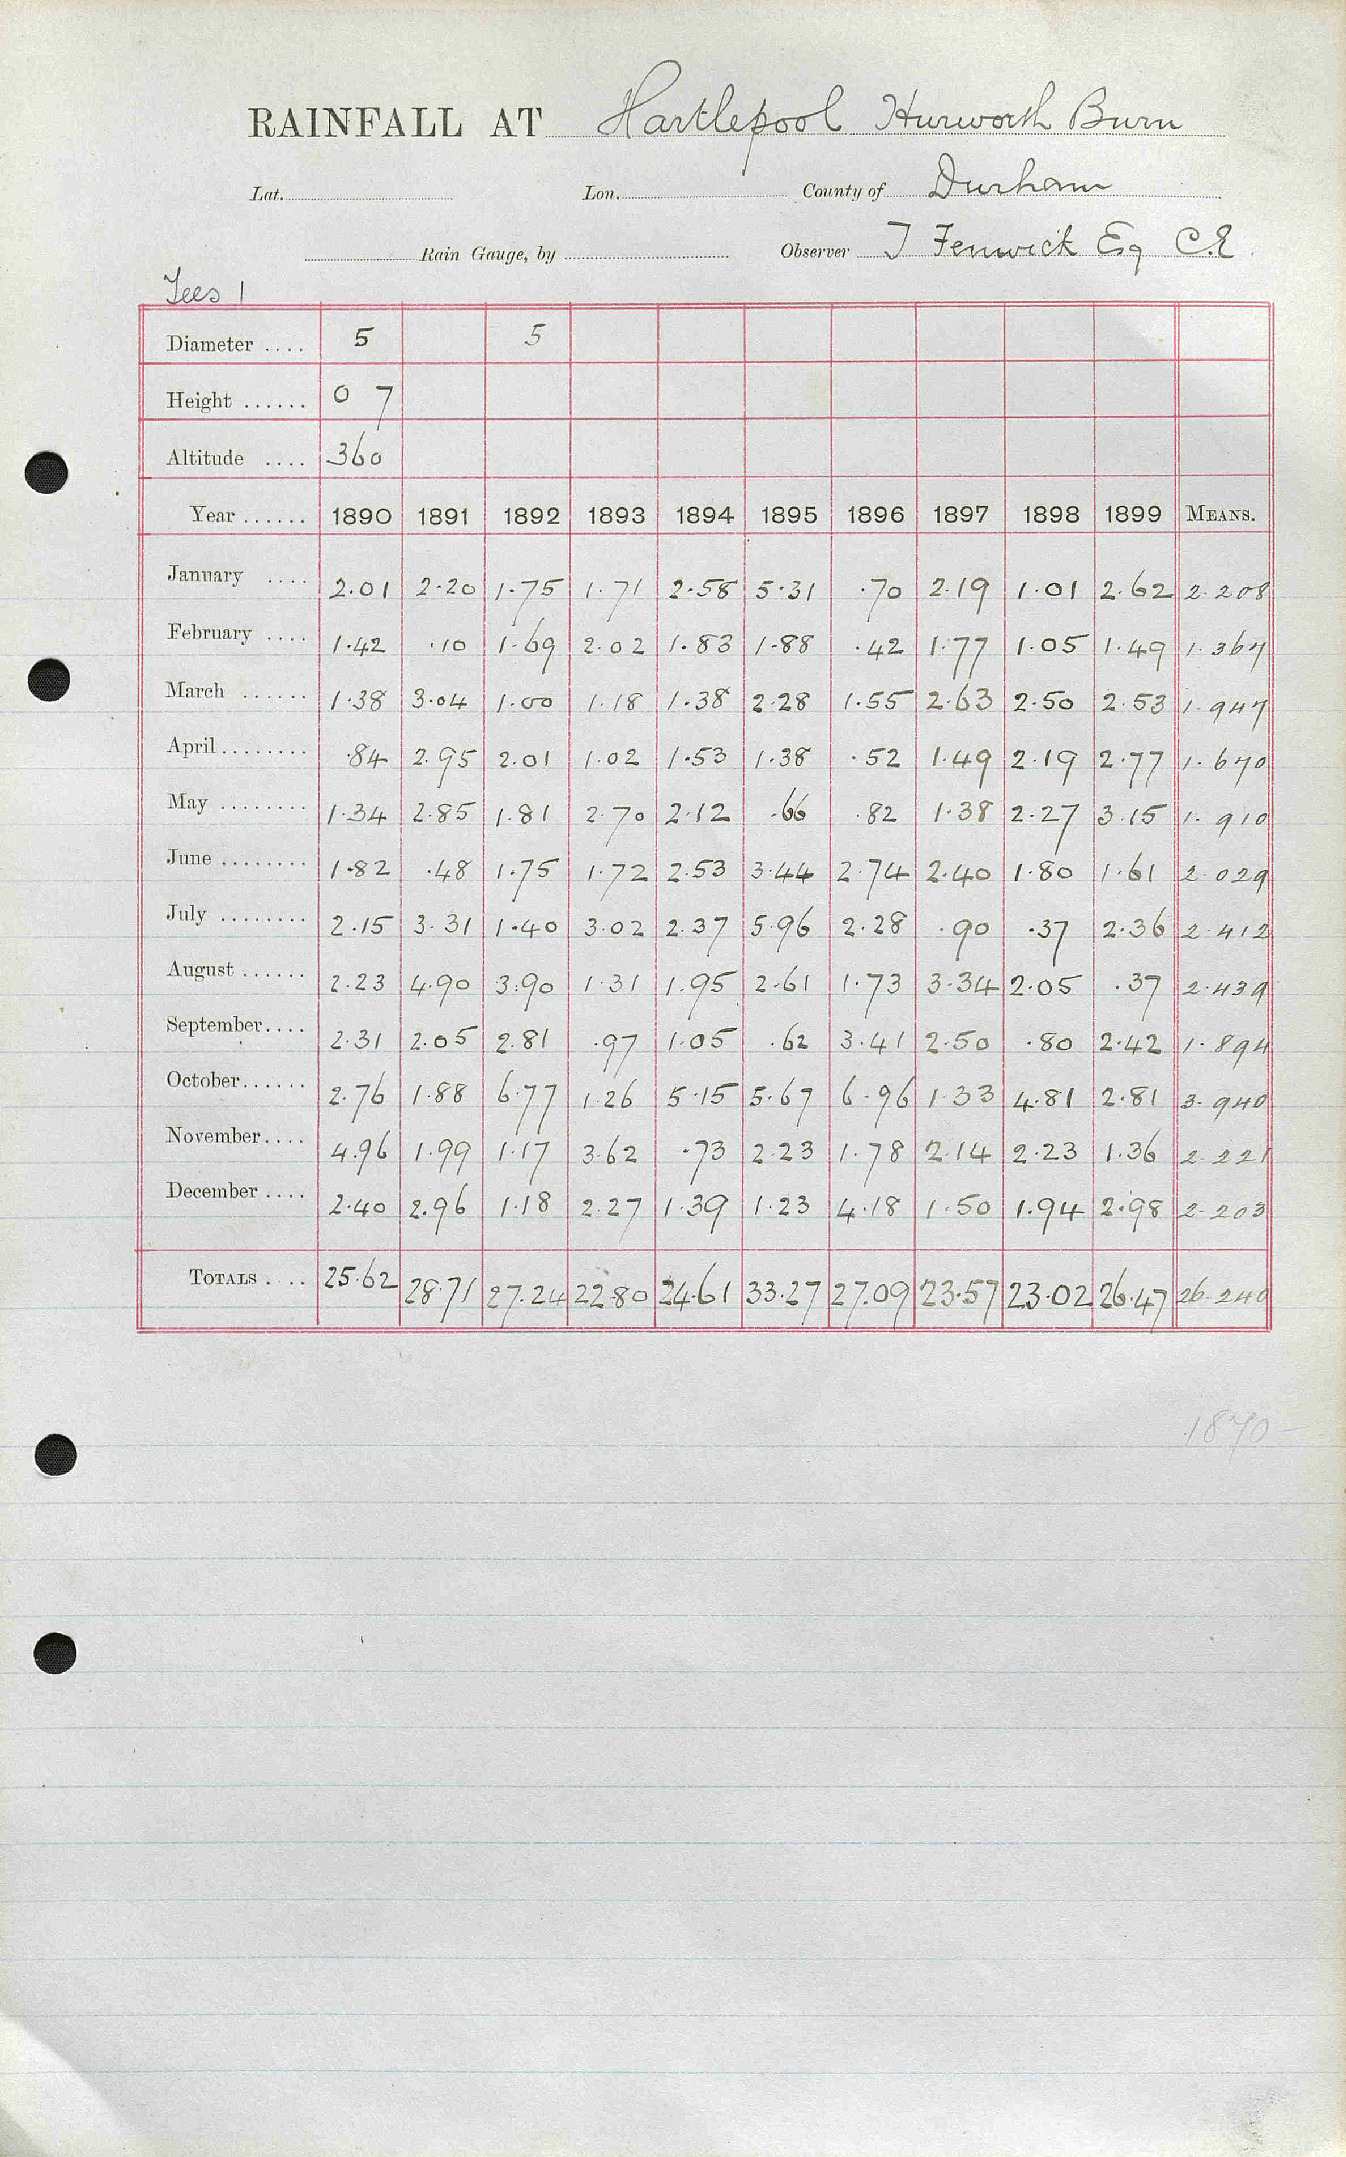 RAINFALL AT Hartlepool Hurworth Burn
Lat. Lon. County of Durham
Rain Gauge, by Observer T Fenwick Esq C.E.
Tees 1
Diameter .... 5 5
Height ...... 0 7
Altitude .... 360
Year ...... 1890 1891 1892 1893 1894 1895 1896 1897 1898 1899 MEANS.
January .... 2.01 2.20 1.75 1.71 2.58 5.31 .70 2.19 1.01 2.62 2.208
February .... 1.42 .10 1.69 2.02 1.83 1.88 .42 1.77 1.05 1.49 1.367
March ...... 1.38 3.04 1.00 1.18 1.38 2.28 1.55 2.63 2.50 2.53 1.947
April ........ .84 2.95 2.01 1.02 1.53 1.38 .52 1.49 2.19 2.77 1.670
May ........ 1.34 2.85 1.81 2.70 2.12 .66 .82 1.38 2.27 3.15 1.910
June ........ 1.82 .48 1.75 1.72 2.53 3.44 2.74 2.40 1.80 1.61 2.029
July ........ 2.15 3.31 1.40 3.02 2.37 5.96 2.28 .90 .37 2.36 2.412
August ...... 2.23 4.90 3.90 1.31 1.95 2.61 1.73 3.34 2.05 .37 2.439
September.... 2.31 2.05 2.81 .97 1.05 .62 3.41 2.50 .80 2.42 1.894
October...... 2.76 1.88 6.77 1.26 5.15 5.67 6.96 1.33 4.81 2.81 3.940
November.... 4.96 1.99 1.17 3.62 .73 2.23 1.78 2.14 2.23 1.36 2.221
December .... 2.40 2.96 1.18 2.27 1.39 1.23 4.18 1.50 1.94 2.98 2.203
TOTALS . .. 25.62 28.71 27.24 22.80 24.61 33.27 27.09 23.57 23.02 26.47 26.240
1870-